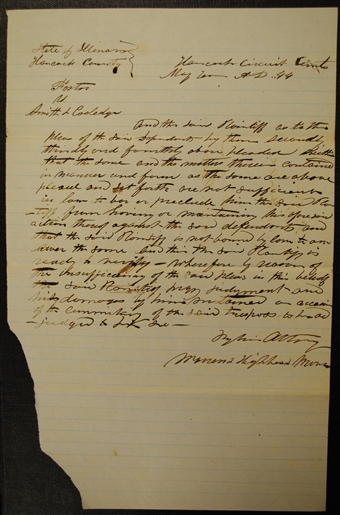 State of Illinois
Hancock County
Hancock Circuit Court
May Term A.D. 44
Foster
vs
Smith & Coolidge
And the said Plaintiff as to the
pleas of the said defendants by them secondly
thirdly and fourthly above pleaded saith
that the same and the matters therein contained
in manner and form as the same are above
plead and set forth are not sufficient
in law to bar or preclude him the said Plain
tiff from having or maintaining his aforesaid
action thereof against the said defendants and
that the said Plaintiff is not bound by law to an
swer the same And this the said Plaintiff is
ready to verify - Wherefore by reason of
the insufficiency of the said pleas in this behalf
the said Plaintiff prays judgment and
his damages by him sustained on occasion
of the committing of the said trespass to be ad
-judged to him &c -
by his Attory
Warren &